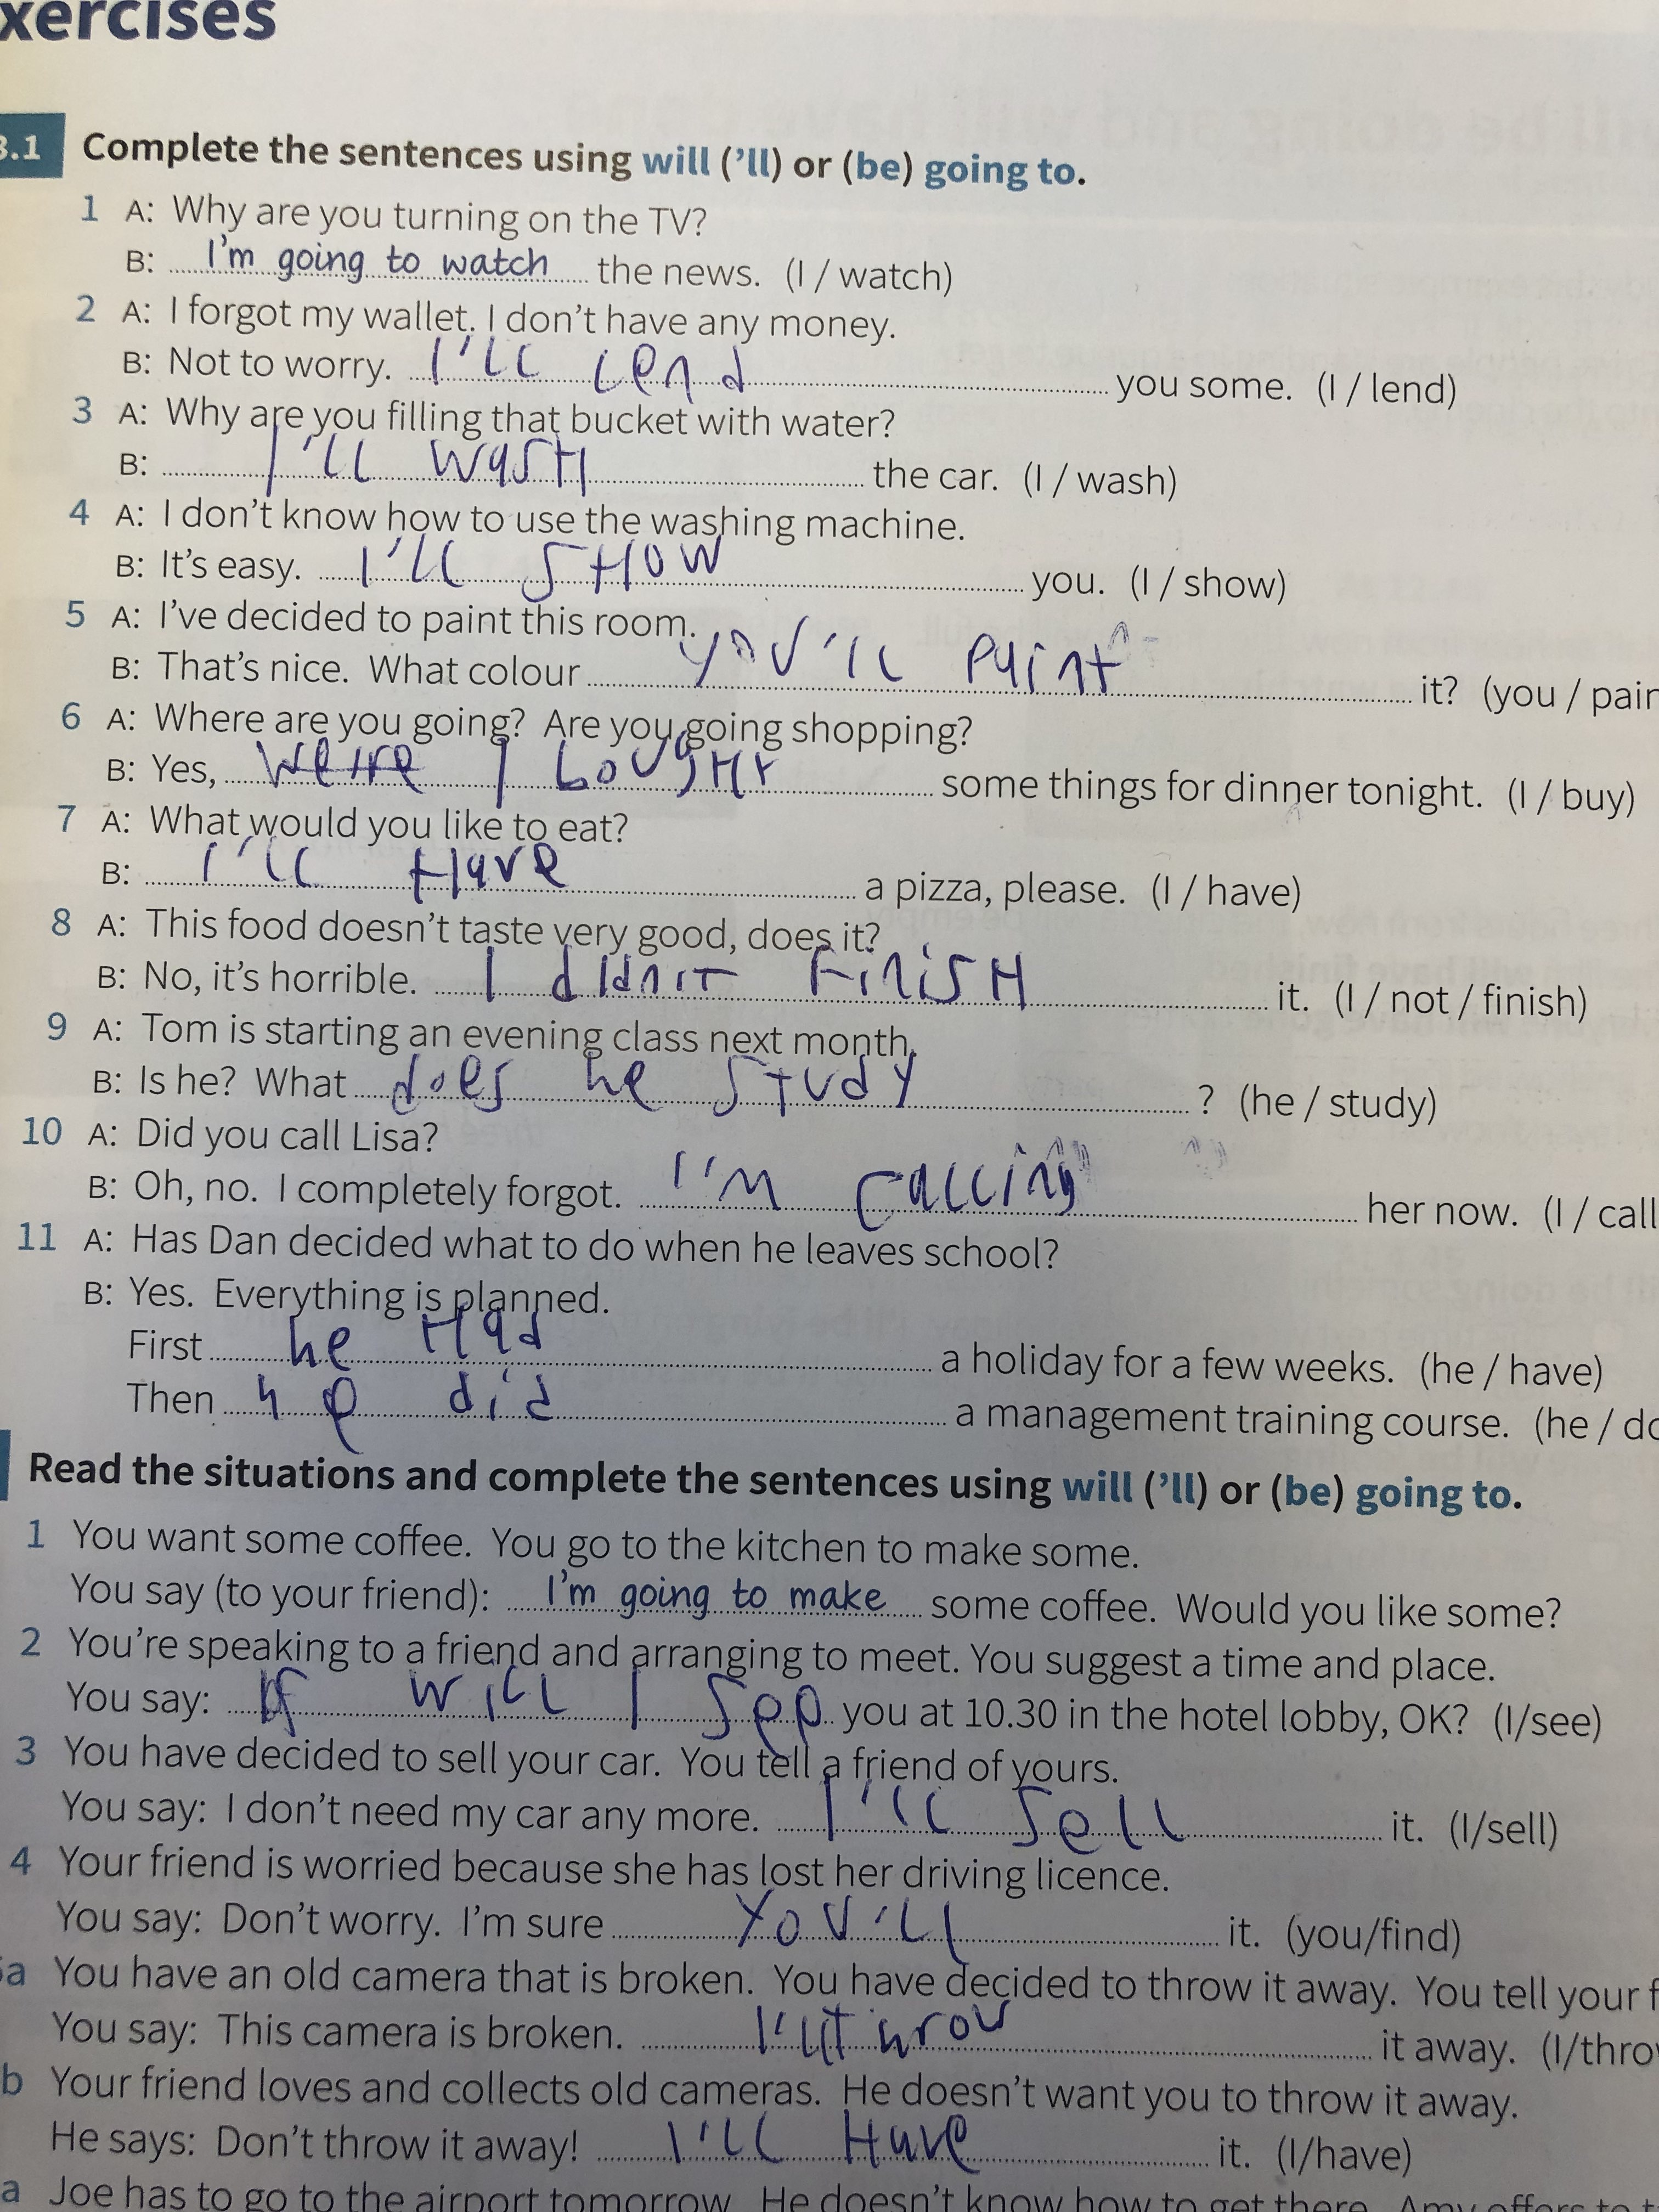 xercises
3.1 Complete the sentences using will ('ll) or (be) going to.
1 A: Why are you turning on the TV?
B: I'm going to watch the news. (I / watch)
2 A: I forgot my wallet. I don't have any money.
B: Not to worry. I'll lend you some. (I / lend)
3 A: Why are you filling that bucket with water?
B: I'll wash the car. (I / wash)
4 A: I don't know how to use the washing machine.
B: It's easy. I'll show you. (I / show)
5 A: I've decided to paint this room.
B: That's nice. What colour you'll paint it? (you / pain
6 A: Where are you going? Are you going shopping?
B: Yes, I bought some things for dinner tonight. (I / buy)
7 A: What would you like to eat?
B: I'll have a pizza, please. (I / have)
8 A: This food doesn't taste very good, does it?
B: No, it's horrible. I didn't finish it. (I / not / finish)
9 A: Tom is starting an evening class next month.
B: Is he? What does he study ? (he / study)
10 A: Did you call Lisa?
B: Oh, no. I completely forgot. I'm calling her now. (I / call
11 A: Has Dan decided what to do when he leaves school?
B: Yes. Everything is planned.
First he had a holiday for a few weeks. (he / have)
Then he did a management training course. (he / do
Read the situations and complete the sentences using will ('ll) or (be) going to.
1 You want some coffee. You go to the kitchen to make some.
You say (to your friend): I'm going to make some coffee. Would you like some?
2 You're speaking to a friend and arranging to meet. You suggest a time and place.
You say: will I see you at 10.30 in the hotel lobby, OK? (I/see)
3 You have decided to sell your car. You tell a friend of yours.
You say: I don't need my car any more. I'll sell it. (I/sell)
4 Your friend is worried because she has lost her driving licence.
You say: Don't worry. I'm sure you'll it. (you/find)
5a You have an old camera that is broken. You have decided to throw it away. You tell your f
You say: This camera is broken. I'll throw it away. (I/throw
b Your friend loves and collects old cameras. He doesn't want you to throw it away.
He says: Don't throw it away! I'll have it. (I/have)
a Joe has to go to the airport tomorrow. He doesn't know how to get there. Amy offers to t